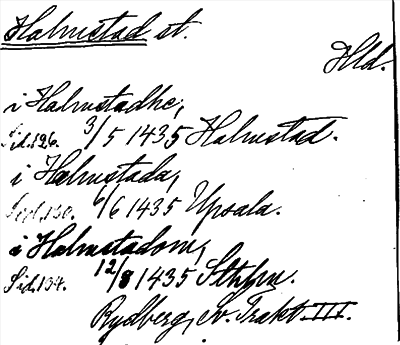 Halmstad st.
Hld.
i Halmstadhe,
Sid.126. 3/5 1435 Halmstad.
i Halmstada,
Sid.130. 6/6 1435 Upsala.
i Halmstadom,
Sid.134. 12/8 1435 Sthlm.
Rydberg, Sv. Trakt. III.